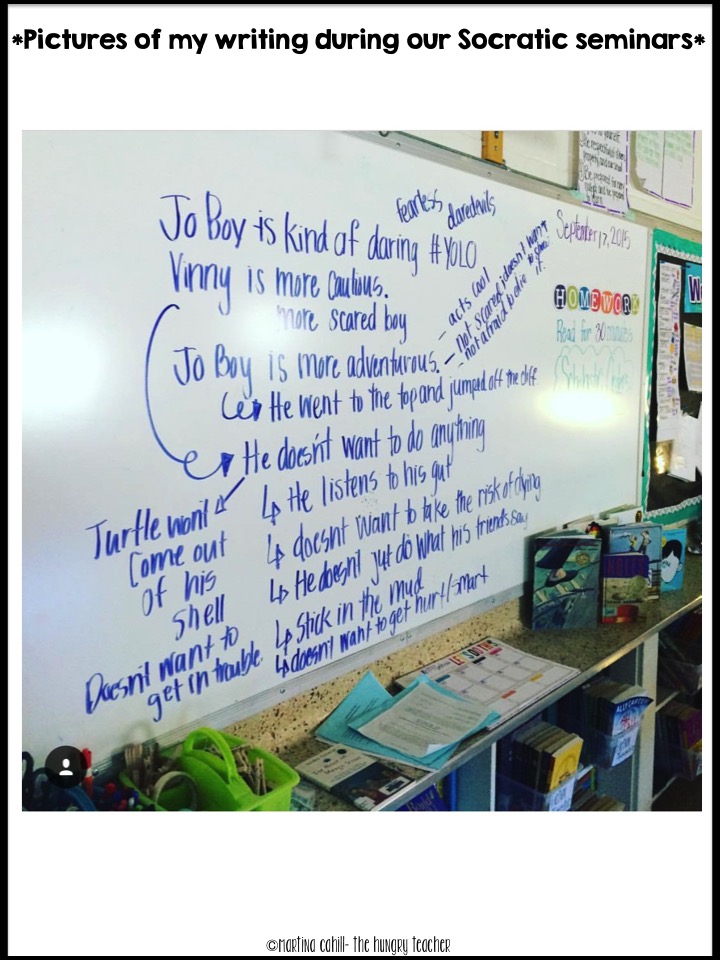 *Pictures of my writing during our Socratic seminars*
fearless daredevils
Jo Boy is kind of daring #YOLO
Vinny is more cautious.
more scared boy
Jo Boy is more adventurous.
- acts cool
- not scared/doesn't want to show it.
- not afraid to die
He went to the top and jumped off the cliff
He doesn't want to do anything
↳ He listens to his gut
↳ doesnt want to take the risk of dying
↳ He doesn't jut do what his friends say
↳ Stick in the mud
↳ doesn't want to get hurt/smart
Turtle wont
Come out
of his
shell
Doesn't want to
get in trouble.
September 17, 2015
HOMEWORK
Read for 30 minutes
Scholastic Orders
ALLY CARTER
©martina cahill- the hungry teacher